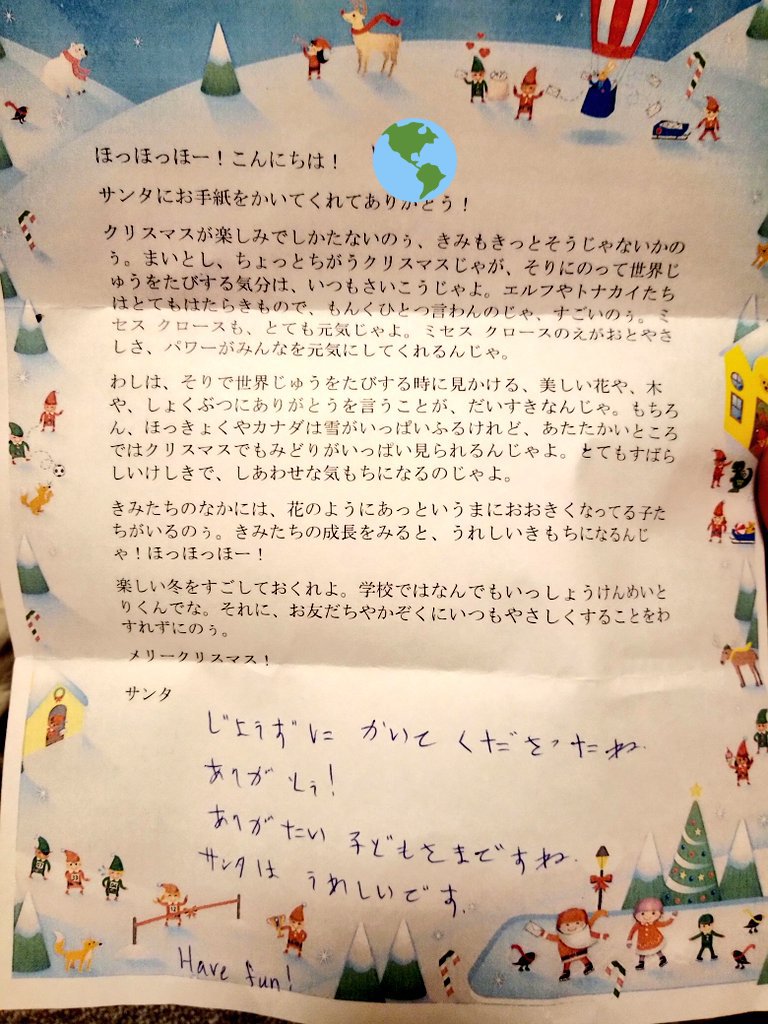 ほっほっほー！こんにちは！
サンタにお手紙をかいてくれてありがとう！
クリスマスが楽しみでしかたないのぅ、きみもきっとそうじゃないかの
ぅ。まいとし、ちょっとちがうクリスマスじゃが、そりにのって世界じ
ゅうをたびする気分は、いつもさいこうじゃよ。エルフやトナカイたち
はとてもはたらきもので、もんくひとつ言わんのじゃ、すごいのぅ。ミ
セス クロースも、とても元気じゃよ。ミセス クロースのえがおとやさ
しさ、パワーがみんなを元気にしてくれるんじゃ。
わしは、そりで世界じゅうをたびする時に見かける、美しい花や、木
や、しょくぶつにありがとうを言うことが、だいすきなんじゃ。もちろ
ん、ほっきょくやカナダは雪がいっぱいふるけれど、あたたかいところ
ではクリスマスでもみどりがいっぱい見られるんじゃよ。とてもすばら
しいけしきで、しあわせな気もちになるのじゃよ。
きみたちのなかには、花のようにあっというまにおおきくなってる子た
ちがいるのぅ。きみたちの成長をみると、うれしいきもちになるんじ
ゃ！ほっほっほー！
楽しい冬をすごしておくれよ。学校ではなんでもいっしょうけんめいと
りくんでな。それに、お友だちやかぞくにいつもやさしくすることをわ
すれずにのぅ。
メリークリスマス！
サンタ
じょうずに かいて くださったね.
ありがとう!
ありがたい 子どもさまですね.
サンタは うれしいです.
Have fun!